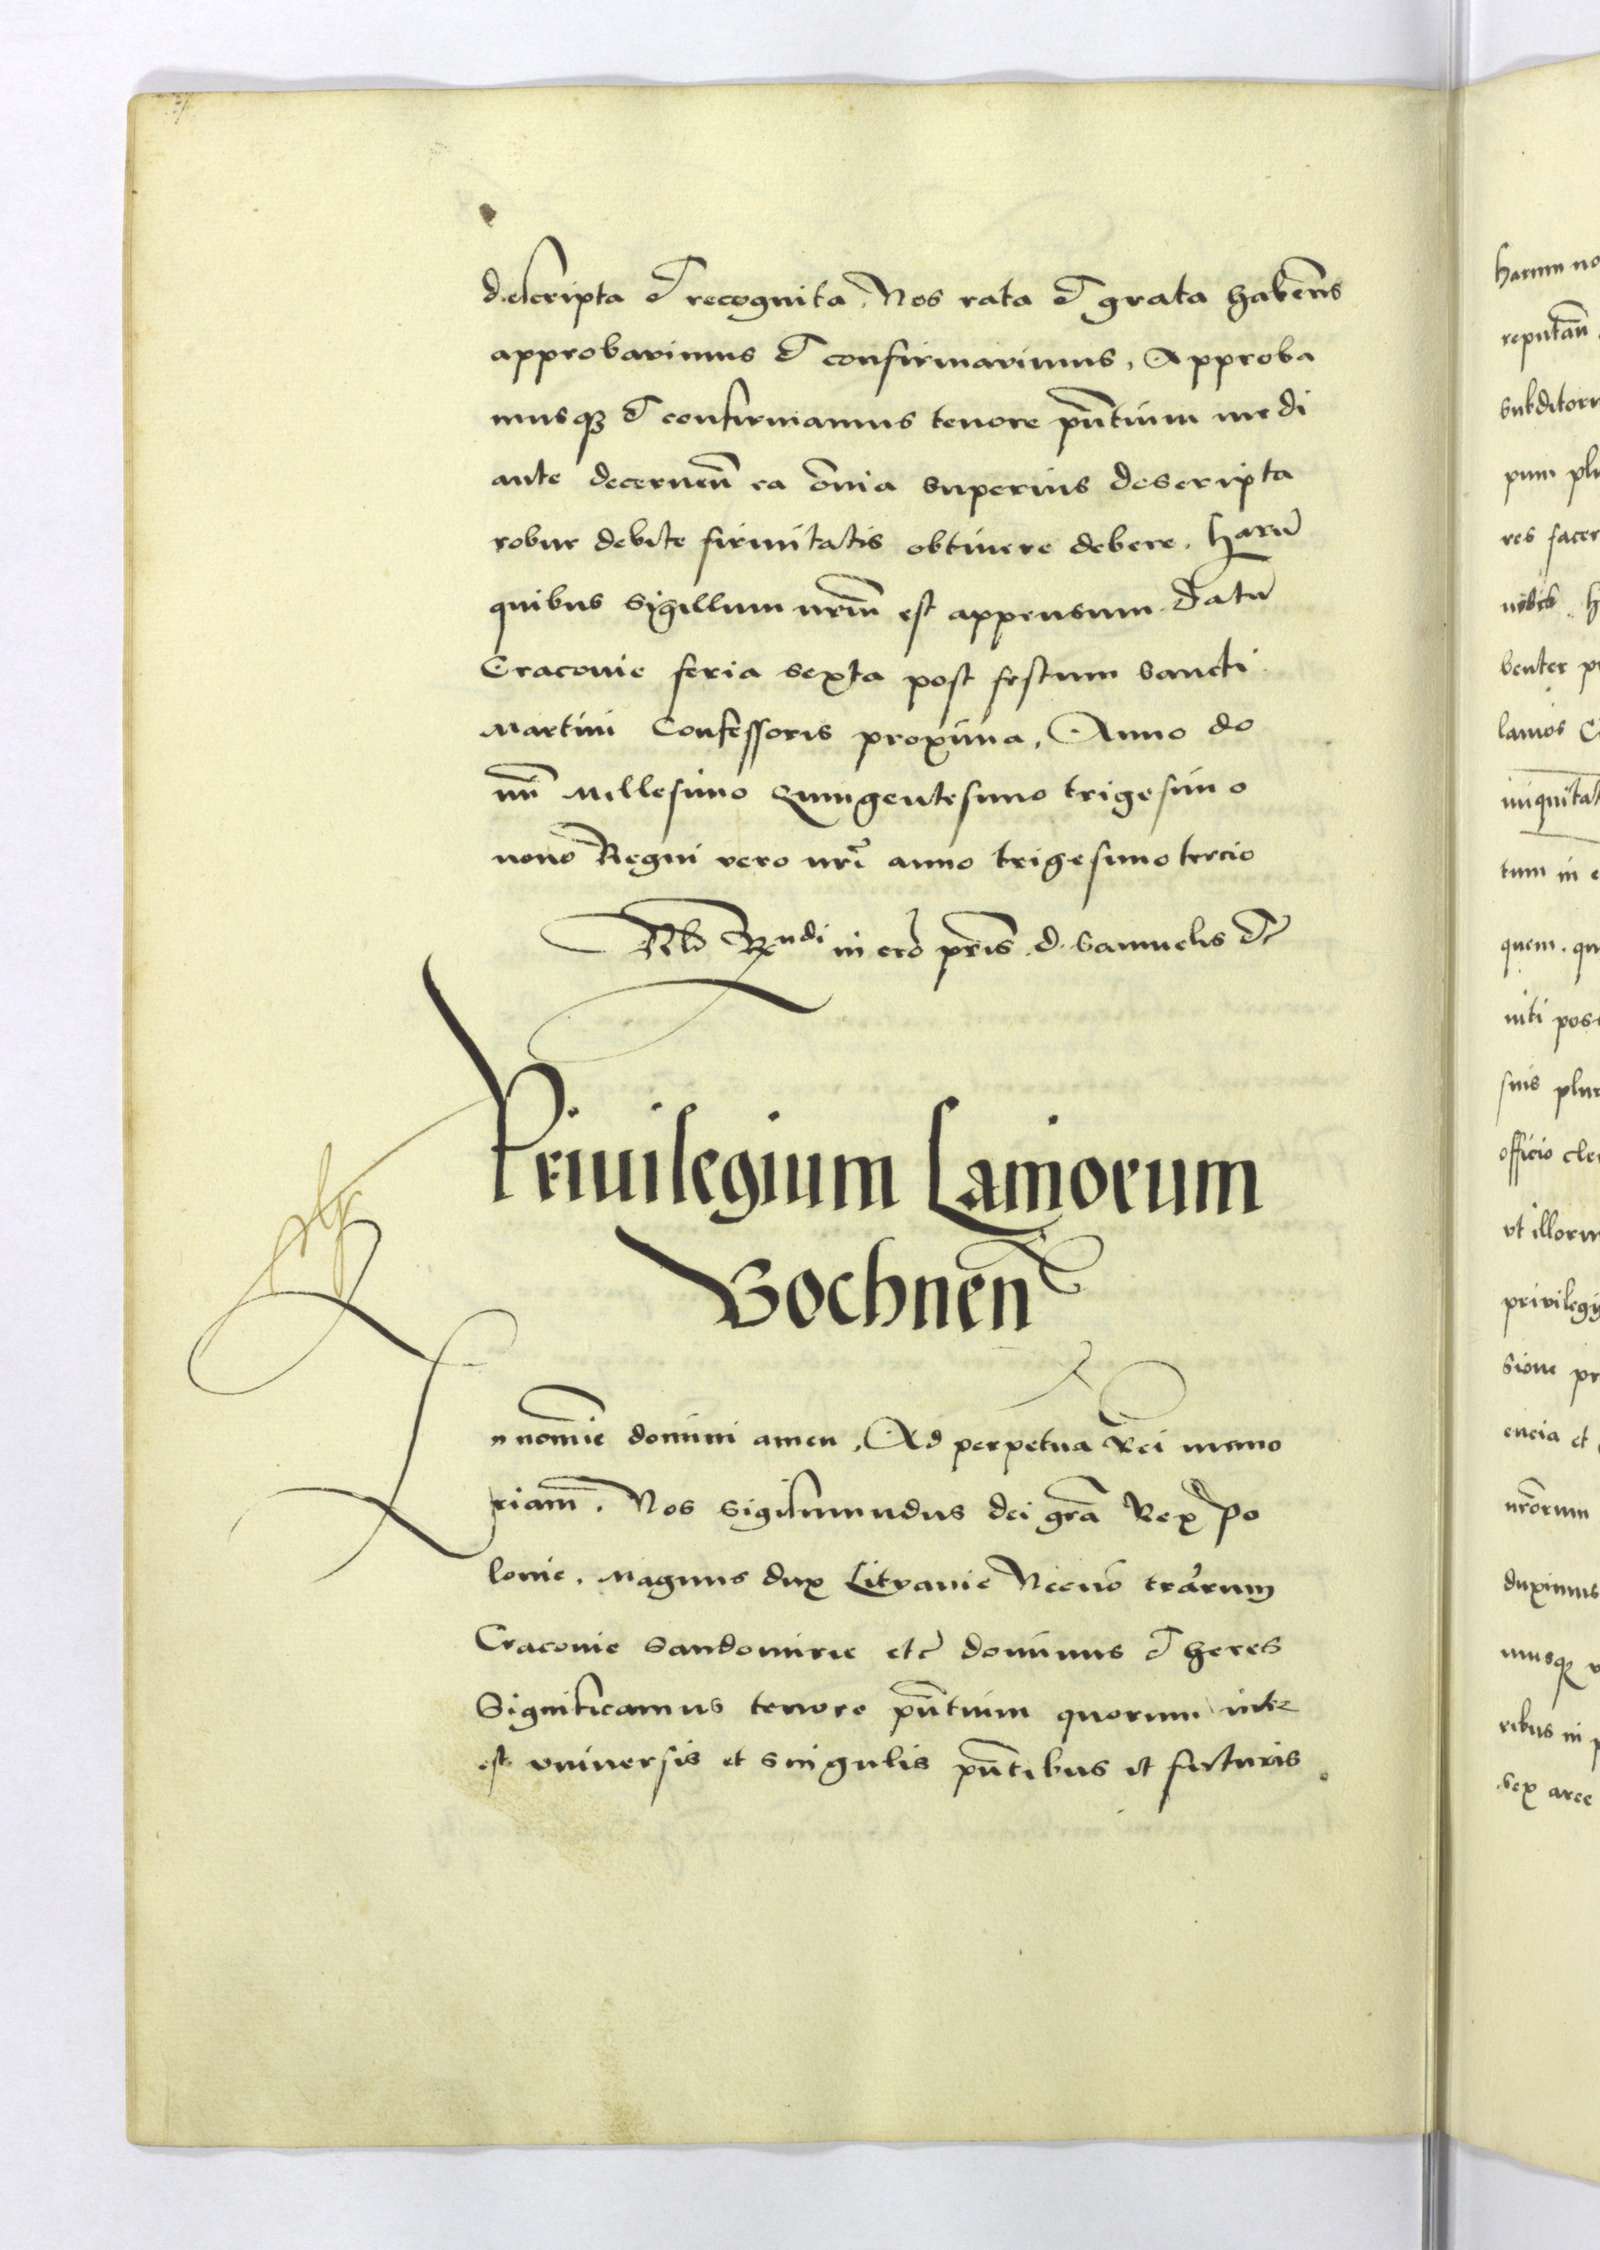 descripta et recognita. Nos rata et grata habens̄
approbavimus et confirmavimus, Approba
musqꝫ et confirmamus tenore pn̄tium medi
ante decernen̄ ea om̄ia superius descripta
robur debite firmitatis obtinere debere. Harū
quibus Sigillum nrm̄ est appensum. Datū
Cracovie feria sexta post festum sancti
Martini Confessoris proxima, Anno do
mī Millesimo Quingentesimo trigesimo
nono Regni vero nrī anno trigesimo tercio
Rndi in cro pr̄is d. Samuelis etc
Privilegium Laniorum
Bochnen̄
In nom̄ie domini amen, Ad perpetua Rei memo
riam̄. Nos Sigismundus dei grā Rex Po
lonie. Magnus dux Litvanie Necnō trārum
Cracovie Sandomirie etc dominus et heres
Significamus tenore pn̄tium quorum inter
est universis et singulis pn̄tibus et futuris.
harum no
reputan̄
subditoru
pum plu
res facer
nobis. h
benter pr
lanios
iniquitat
tum in e
quem. qu
niti poss
suis plur
officio cle
vt illorum
privilegij
sione pr
encia et
nrōrum
duximus
musqꝫ v
ribus in p
Sex arce